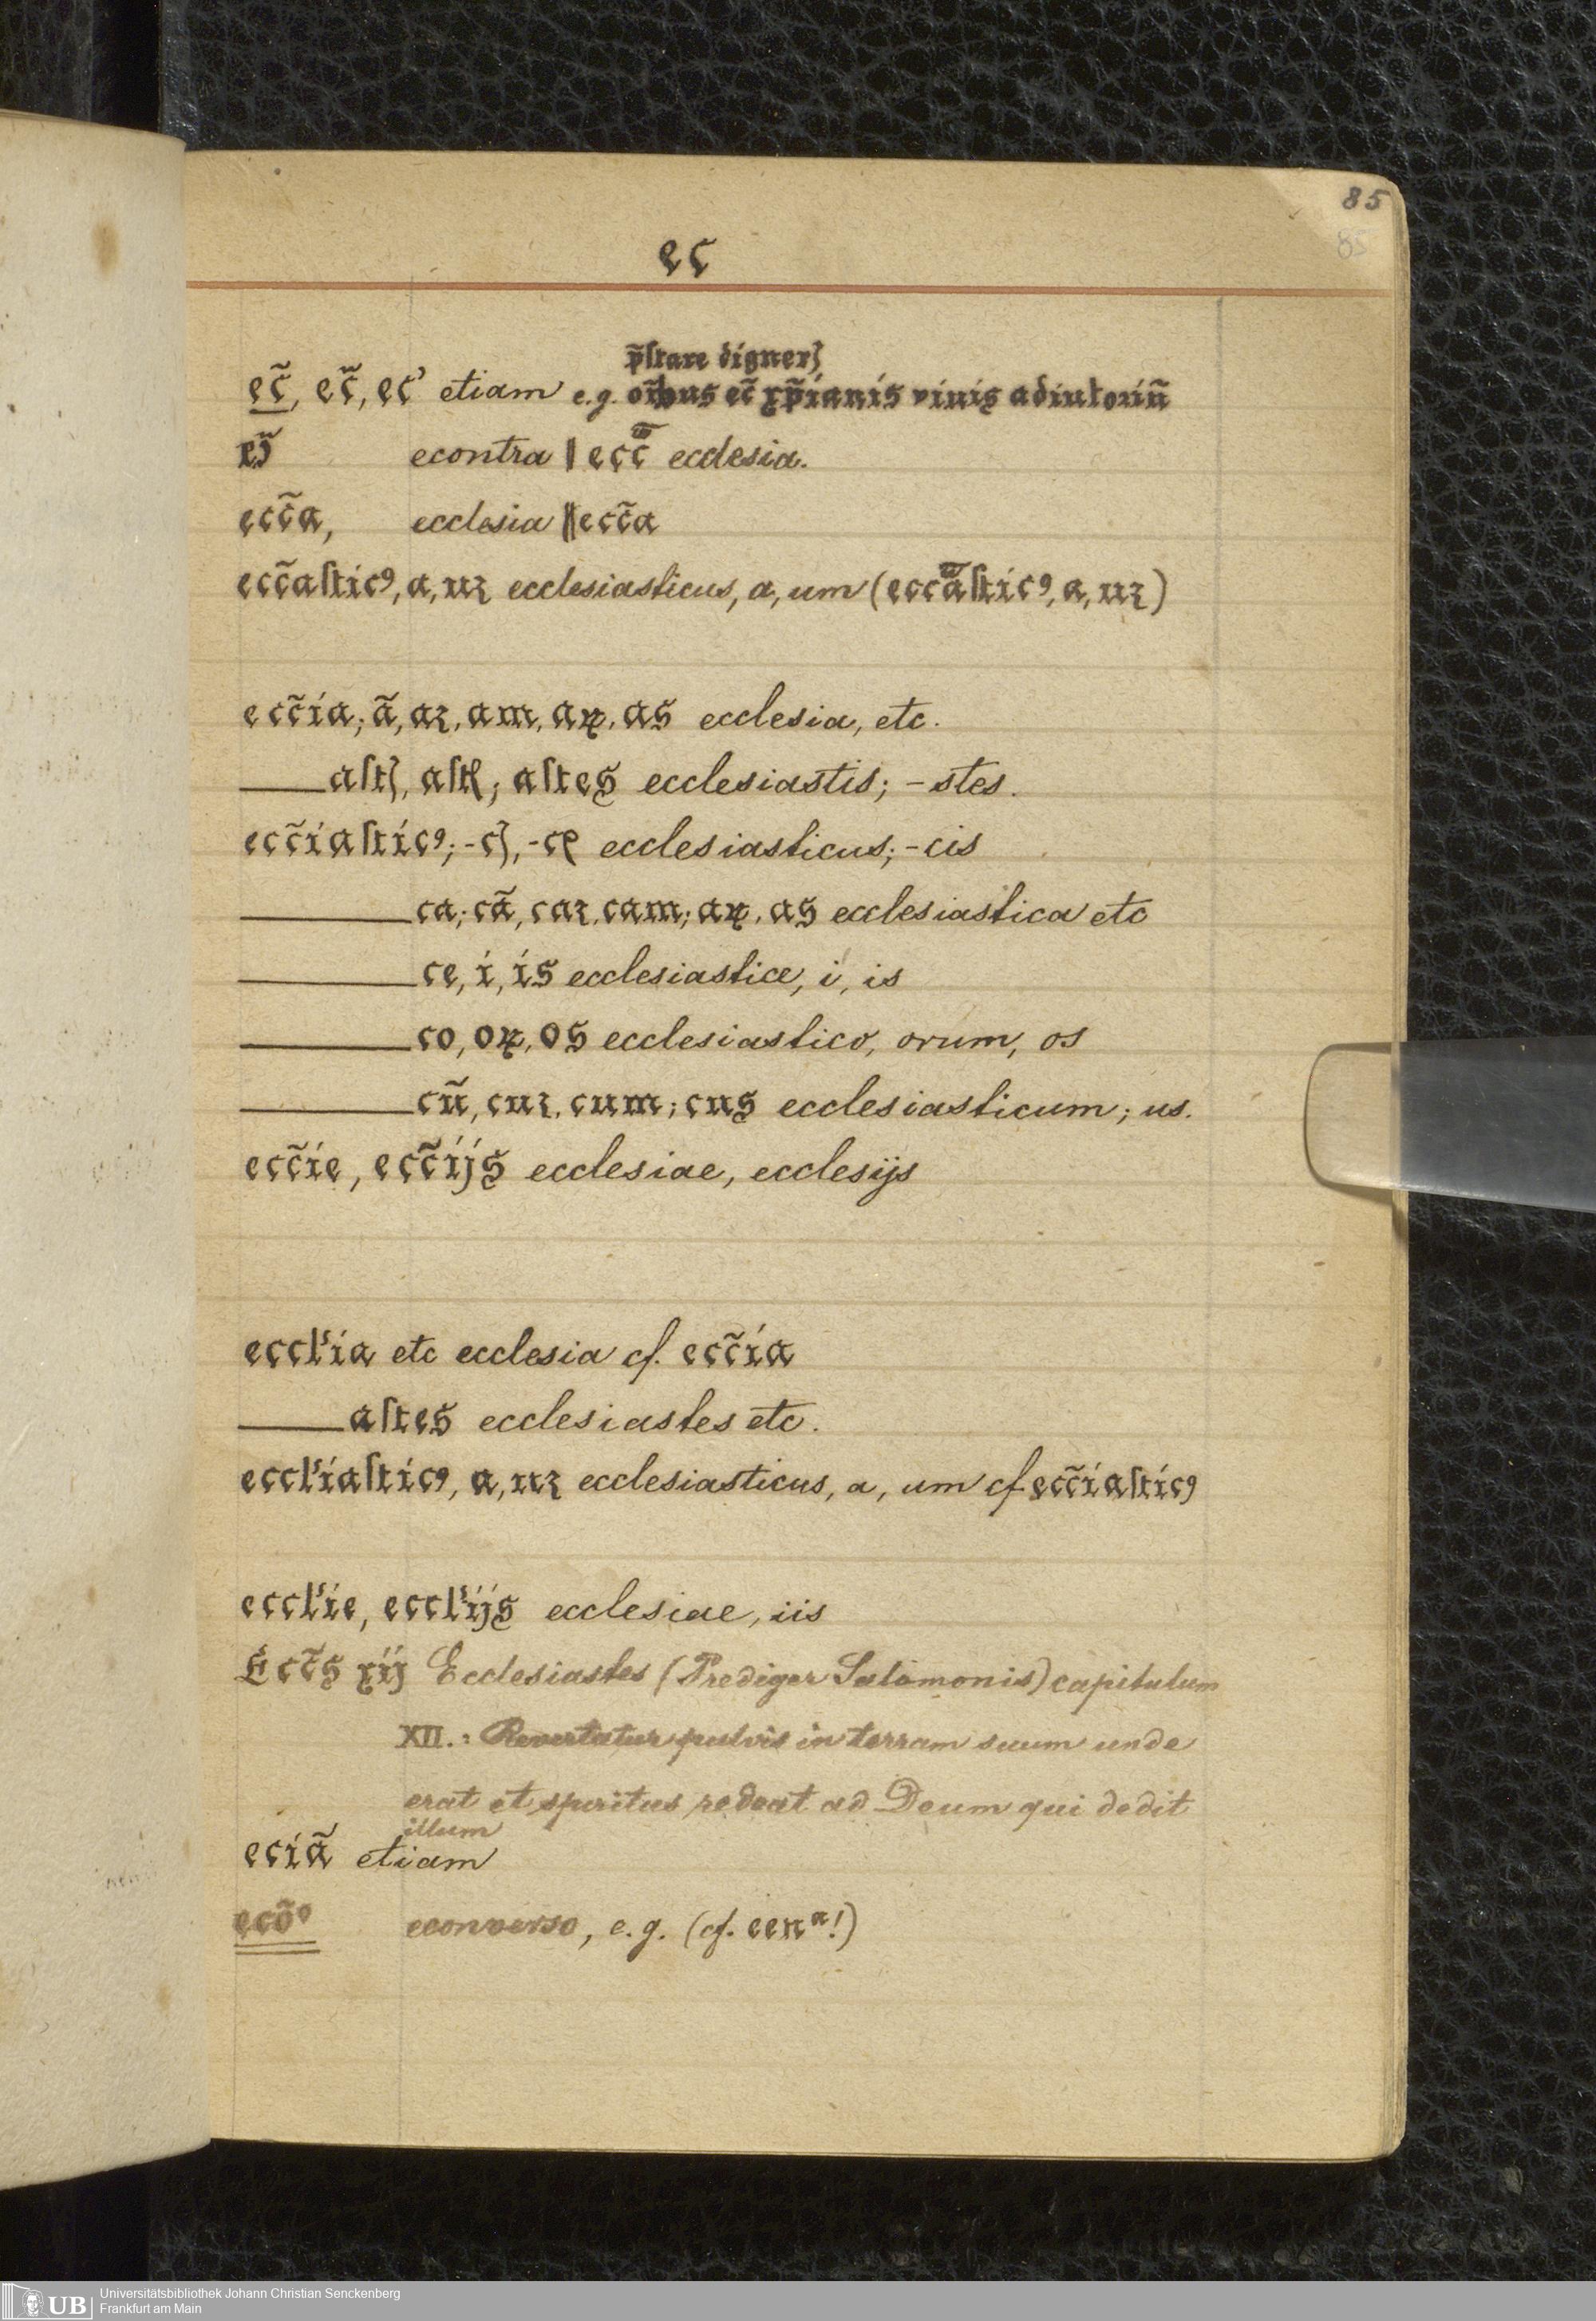 85
85
ec
p̃ſtare dignerꝭ
ec̃, ec̃, ec' etiam e.g. oĩbus ec̃ xp̃ianis viuis adiutoriũ
econtra | ecc̃ ecclesia.
ecc̃a, ecclesia || ecc̃a
ecc̃aſticꝯ, a, uꝫ ecclesiasticus, a, um (ecc̃aſticꝯ, a, uꝫ)
ecc̃ia; ã, aꝫ, am, aꝝ, as ecclesia, etc.
—— aſtꝭ, aſtꝭ; aſtes ecclesiastis; -stes.
ecc̃iaſticꝯ; -cꝭ, -cꝭ ecclesiasticus; -cis
—— ca; cã, caꝫ, cam; aꝝ, as ecclesiastica etc
—— ce, i, is ecclesiastice, i, is
—— co, oꝝ, os ecclesiastico, orum, os
—— cũ, cuꝫ, cum; cus ecclesiasticum; us.
ecc̃ie, ecc̃ijs ecclesiae, ecclesijs
eccl'ia etc ecclesia cf. ecc̃ia
—— aſtes ecclesiastes etc.
eccl'iaſticꝯ, a, uꝫ ecclesiasticus, a, um cf ecc̃iaſticꝯ
eccl'ie, eccl'ijs ecclesiae, iis
Ecc̃s xij Ecclesiastes (Prediger Salomonis) capitulum
XII.: Revertatur pulvis in terram suum unde
erat et spiritus redeat ad Deum qui dedit
illum
eciã etiam
ecõᵒ econverso, e.g. (cf. ecnᵃ!)
UB Universitätsbibliothek Johann Christian Senckenberg
Frankfurt am Main